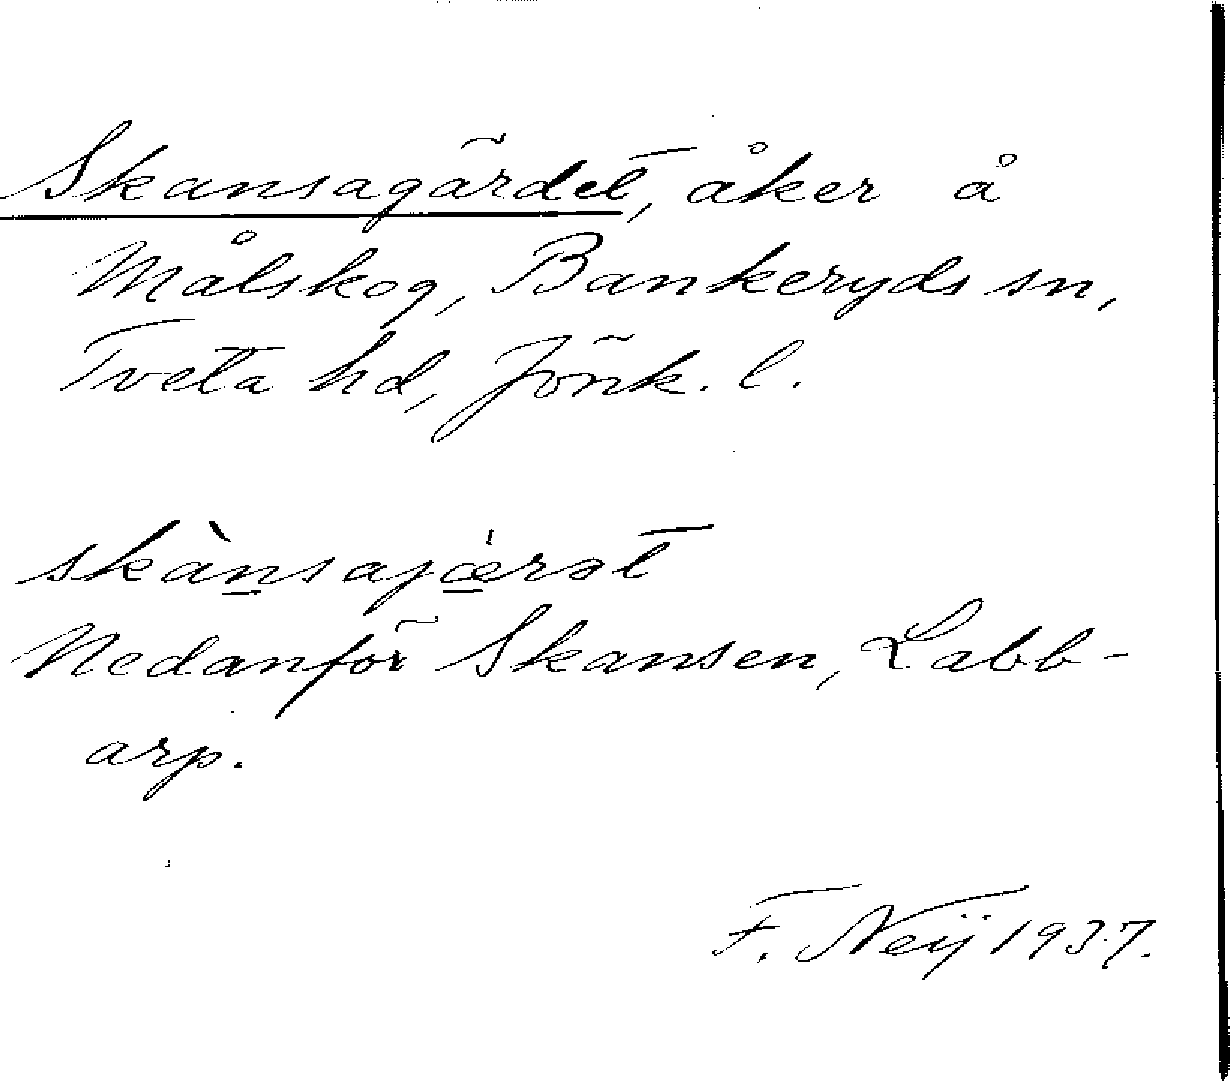 Skansagärdet, åker å
Målskog, Bankeryds sn,
Tveta hd, Jönk. l.
skànsajæ̍rət
Nedanför Skansen, Labb-
arp.
F. Neij 1937.